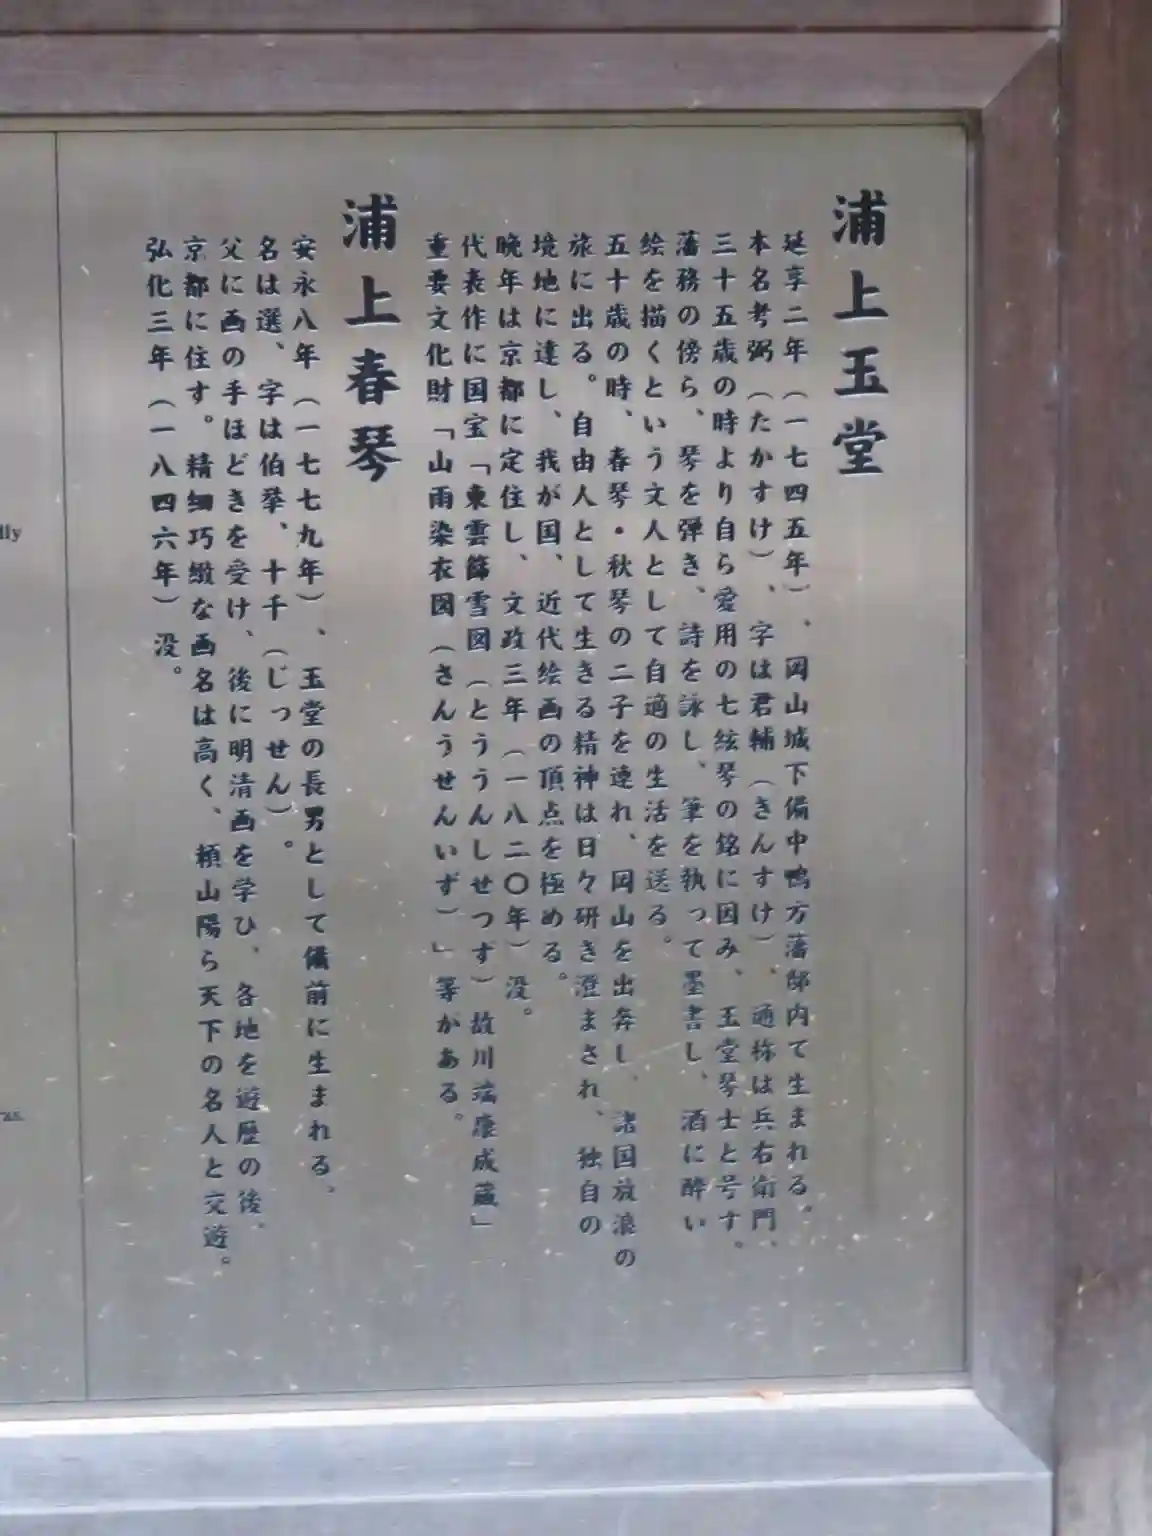 浦上玉堂
延享二年（一七四五年）、岡山城下備中鴨方藩邸内て生まれる。
本名考弼（たかすけ）、字は君輔（きんすけ）、通称は兵右衛門、
三十五歳の時より自ら愛用の七絃琴の銘に因み、玉堂琴士と号す。
藩務の傍ら、琴を弾き、詩を詠し、筆を執って墨書し、酒に酔い
絵を描くという文人として自適の生活を送る。
五十歳の時、春琴・秋琴の二子を連れ、岡山を出奔し、諸国放浪の
旅に出る。自由人として生きる精神は日々研き澄まされ、独自の
境地に達し、我が国、近代絵画の頂点を極める。
晩年は京都に定住し、文政三年（一八二〇年）没。
代表作に国宝「東雲篩雪図（とううんしせつず）故川端康成蔵」
重要文化財「山雨染衣図（さんうせんいず）」等がある。
浦上春琴
安永八年（一七七九年）、玉堂の長男として備前に生まれる。
名は選、字は伯挙、十千（じっせん）。
父に画の手ほどきを受け、後に明清画を学ひ、各地を遊歴の後、
京都に住す。精細巧緻な画名は高く、頼山陽ら天下の名人と交遊。
弘化三年（一八四六年）没。
lly
ras.